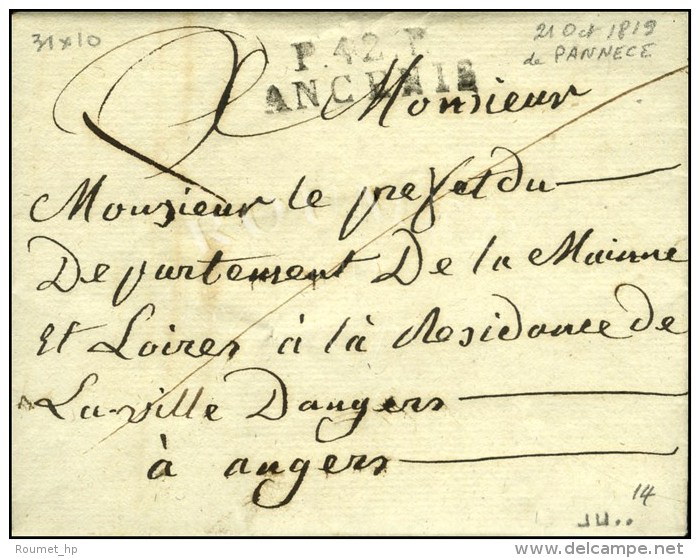 31x10
P.42.P.
ANCENIS
21 Oct 1819
de PANNECE
Monsieur
Monsieur le prefet du
Departement De la Mainne
Et Loires à là Residance de
La ville Dangers
à angers
14
Roumet_hp
www.delcampe.net